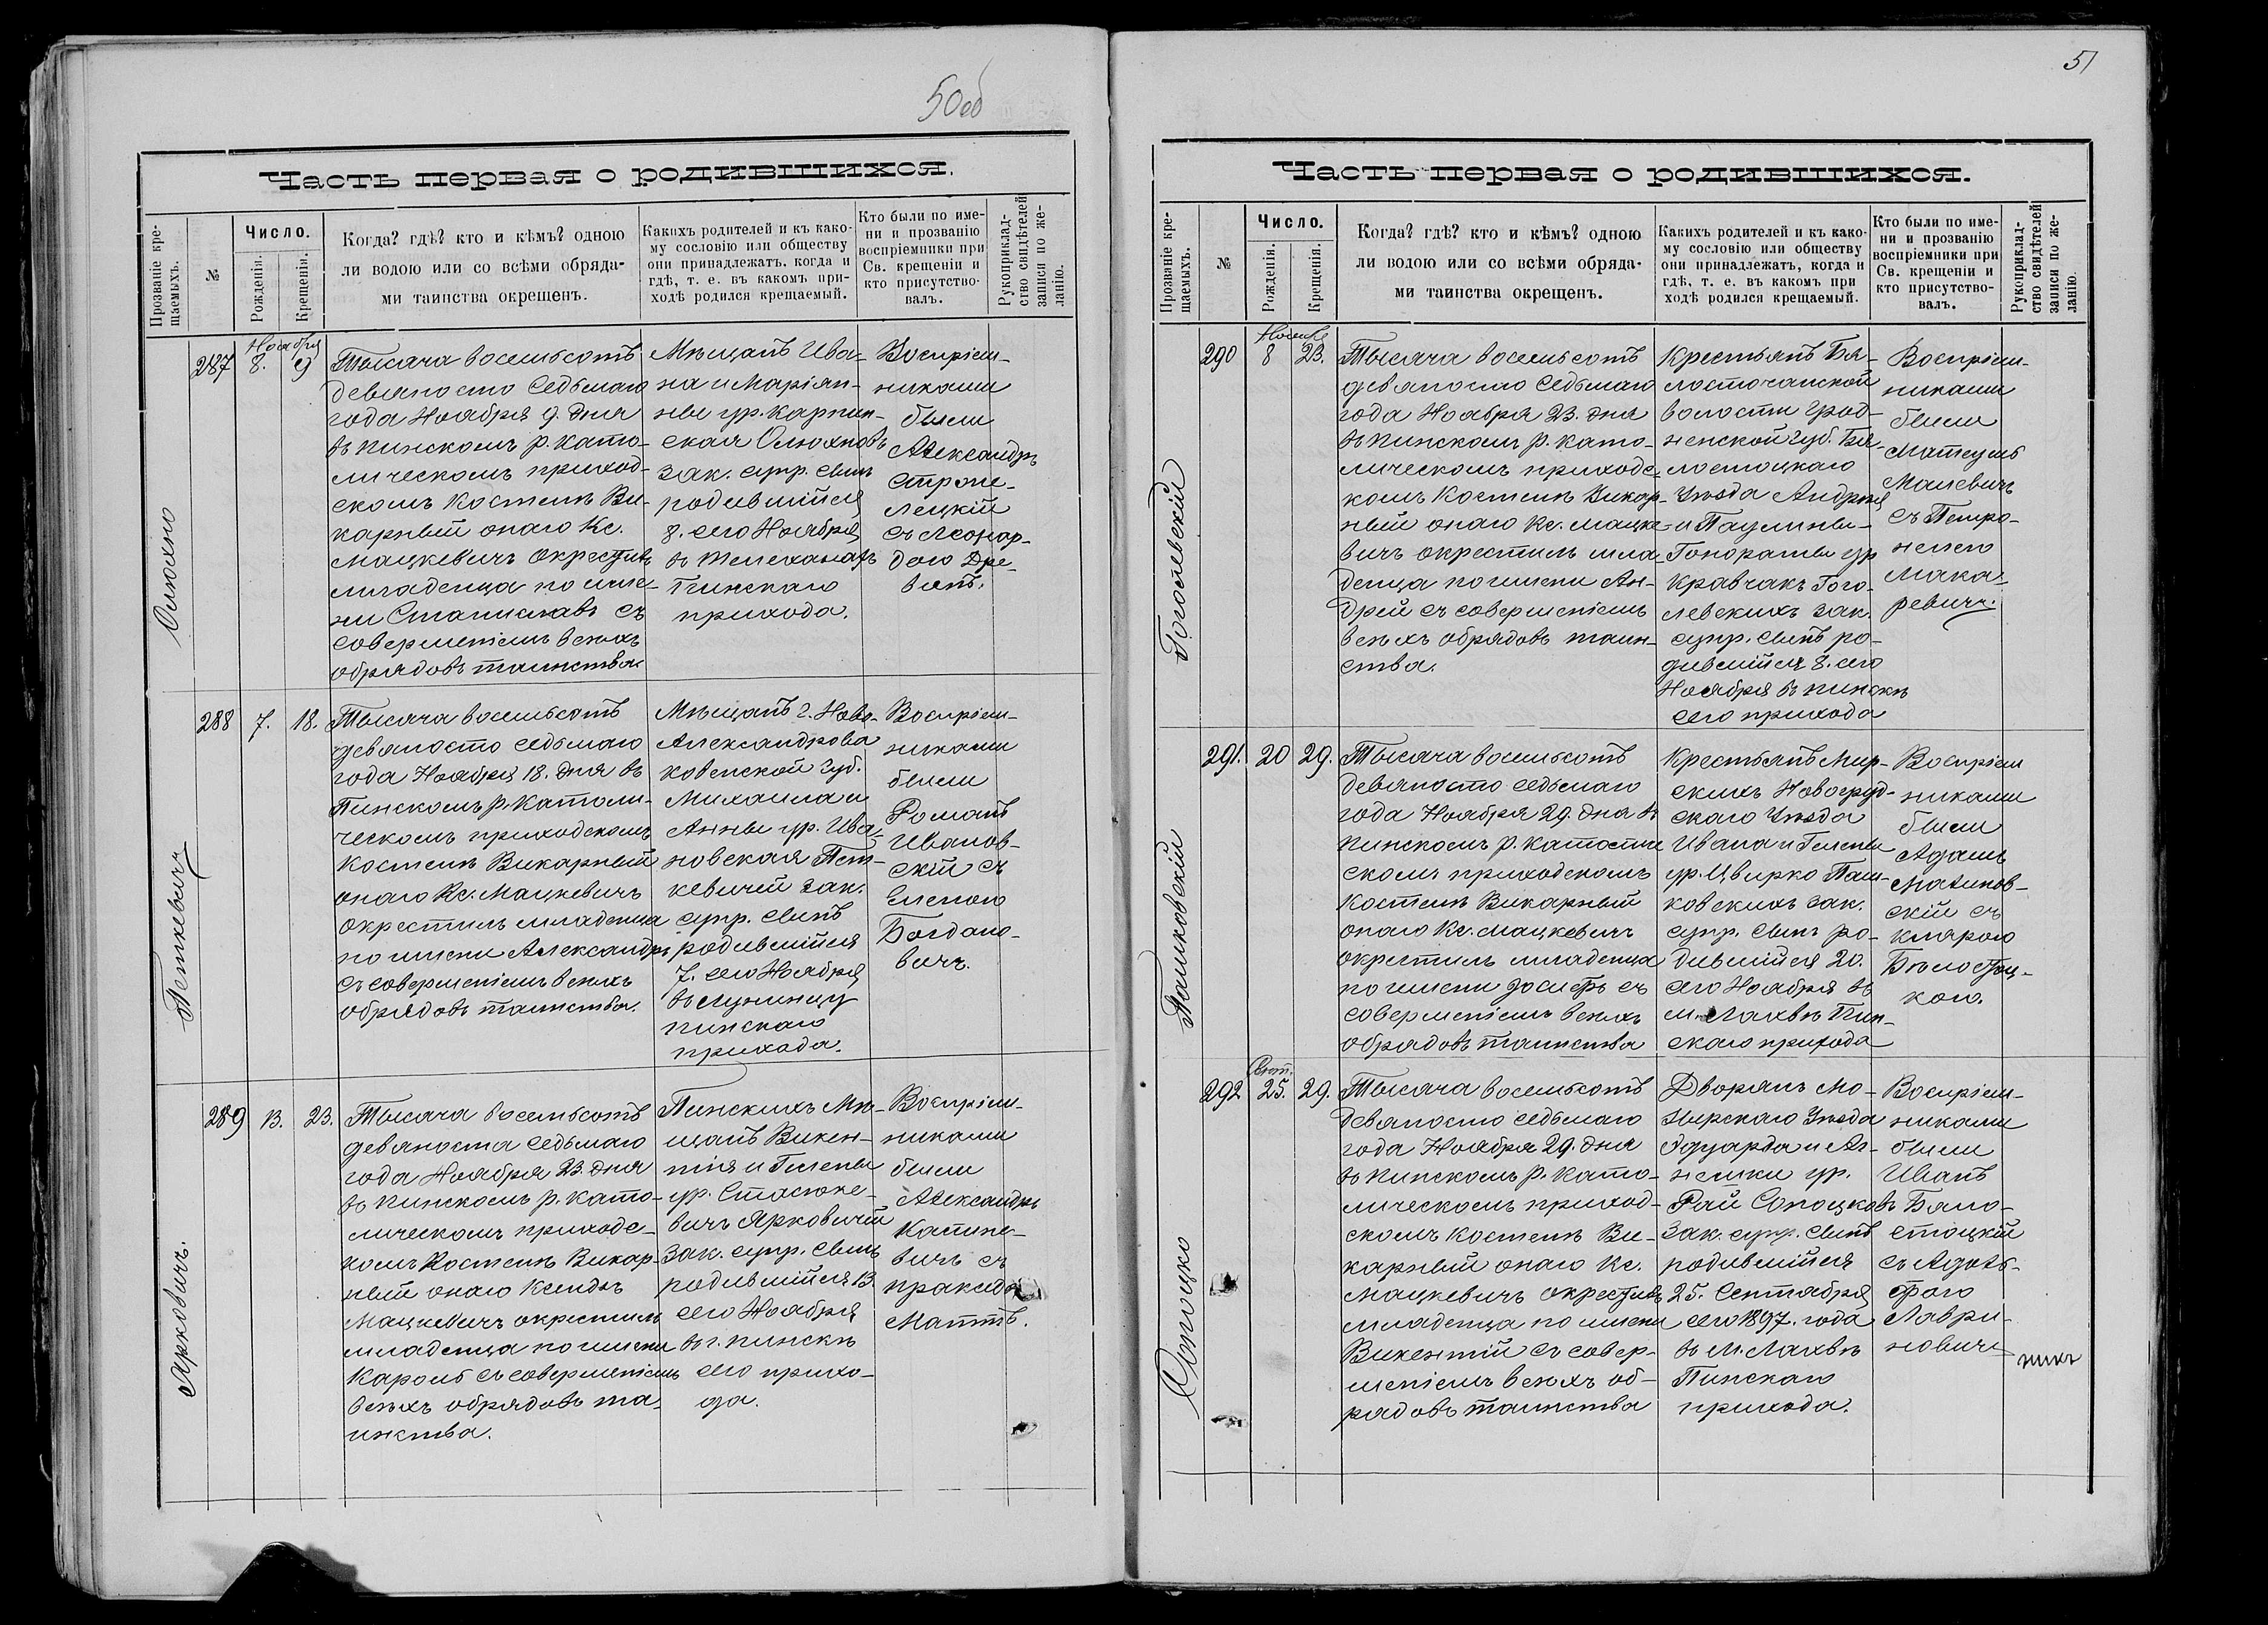 50об
Часть первая о родившихся.
Прозваніе кре-
щаемыхъ.
№
Число.
Рожденія.
Крещенія.
Когда? гдѣ? кто и кѣмъ? одною
ли водою или со всѣми обряда-
ми таинства окрещенъ.
Какихъ родителей и къ како-
му сословію или обществу
они принадлежатъ, когда и
гдѣ, т. е. въ какомъ при-
ходѣ родился крещаемый.
Кто были по име-
ни и прозванію
воспріемники при
Св. крещеніи и
кто присутство-
валъ.
Рукоприклад-
ство свидѣтелей
записи по же-
ланію.
Олюхно
287
Ноября
8. 9
Тысяча восемьсотъ
девяносто седьмаго
года Ноября 9. дня
въ Пинскомъ р. като-
лическомъ приход-
скомъ костелѣ Ви-
карный онаго Кс.
Мацкевичъ окрестилъ
младенца по име-
ни Станиславъ съ
совершеніемъ всѣхъ
обрядовъ таинства.
Мѣщанъ Ива-
на и Маріан-
ны ур. Карпин-
ская Олюхновъ
зак. супр. сынъ
родившійся
8. сего Ноября
въ Телеханахъ
Пинскаго
прихода.
Воспріем-
никами
были
Александръ
Стропе-
лецкій
съ Леонар-
дою Дре-
вятъ.
Петкевичъ
288
7. 18.
Тысяча восемьсотъ
девяносто седьмаго
года Ноября 18. дня въ
Пинскомъ р. католи-
ческомъ приходскомъ
костелѣ Викарный
онаго Кс. Мацкевичъ
окрестилъ младенца
по имени Александръ
съ совершеніемъ всѣхъ
обрядовъ таинства.
Мѣщанъ г. Ново-
Александрова
Ковенской Губ.
Михаила и
Анны ур. Ива-
новская Пет-
кевичей зак.
супр. сынъ
родившійся
7. сего Ноября
въ Лунинцу
Пинскаго
прихода.
Воспріем-
никами
были
Романъ
Иванов-
скій съ
Еленою
Богдано-
вичъ.
Ярковичъ.
289
13. 23.
Тысяча восемьсотъ
девяноста седьмаго
года Ноября 23. дня
въ Пинскомъ р. като-
лическомъ приходс-
комъ костелѣ Викар-
ный онаго Ксендзъ
Мацкевичъ окрестилъ
младенца по имени
Кароль съ совершеніемъ
всѣхъ обрядовъ та-
инства.
Пинскихъ Мѣ-
щанъ Викен-
тія и Гелены
ур. Стасюке-
вичъ Ярковичей
зак. супр. сынъ
родившійся 13.
сего Ноября
въ г. Пинскѣ
сего прихо-
да.
Воспріем-
никами
были
Александръ
съ
Маттъ.
51
Часть первая о родившихся.
Прозваніе кре-
щаемыхъ.
№
Число.
Рожденія.
Крещенія.
Когда? гдѣ? кто и кѣмъ? одною
ли водою или со всѣми обряда-
ми таинства окрещенъ.
Какихъ родителей и къ како-
му сословію или обществу
они принадлежатъ, когда и
гдѣ, т. е. въ какомъ при
ходѣ родился крещаемый.
Кто были по име-
ни и прозванію
воспріемники при
Св. крещеніи и
кто присутство-
валъ.
Рукоприклад-
ство свидѣтелей
записи по же-
ланію.
Гоголевскій
290
8 23.
Тысяча восемьсотъ
девяносто седьмаго
года Ноября 23. дня
въ Пинскомъ р. като-
лическомъ приходс-
комъ костелѣ Викар-
ный онаго Кс. Мацке-
вичъ окрестилъ мла-
денца по имени Ан-
дрей съ совершеніемъ
всѣхъ обрядовъ таин-
ства.
Крестьянъ Бя-
лосточанской
волости Грод-
ненской Губ. Бя-
лостоцкаго
Уѣзда Андрея
и Паулины-
Гонораты ур
Кравчакъ Гого-
левскихъ зак.
супр. сынъ ро-
дившійся 8. сего
Ноября въ Пинскѣ
сего прихода
Воспріем-
никами
были
Матеушъ
Малевичъ
съ Петро-
нелею
Мака-
ревичъ.
Пашковскій
291.
20 29.
Тысяча восемьсотъ
девяносто седьмаго
года Ноября 29. дня въ
Пинскомъ р. католиче
скомъ приходскомъ
костелѣ Викарный
онаго Кс. Мацкевичъ
окрестилъ младенца
по имени Іосифъ съ
совершеніемъ всѣхъ
обрядовъ таинства
Крестьянъ Мир-
скихъ Новогруд-
скаго Уѣзда
Ивана и Гелены
ур. Цвирко Паш-
ковскихъ зак.
супр. сынъ ро-
дившійся 20.
сего Ноября въ
м. Лахвѣ Пин-
скаго прихода
Воспріем
никами
были
Адамъ
Малинов-
скій съ
Клярою
Бѣлостоц-
кою.
Сопоцко
292
Сент.
25. 29.
Тысяча восемьсотъ
девяносто седьмаго
года Ноября 29. дня
въ Пинскомъ р. като-
лическомъ приход-
скомъ костелѣ Ви-
карный онаго Кс.
Мацкевичъ окрестилъ
младенца по имени
Викентій съ совер-
шеніемъ всѣхъ об-
рядовъ таинства
Дворянъ Мо-
зырскаго Уѣзда
Эдуарда и Аг-
нешки ур.
Рай Сопоцковъ
зак. супр. сынъ
родившійся
25. Сентября
сего 1897. года
въ м. Лахвѣ
Пинскаго
прихода.
Воспріем-
никами
были
Иванъ
Бяло-
стоцкій
съ Адоль-
фою
Лаври-
новичъ